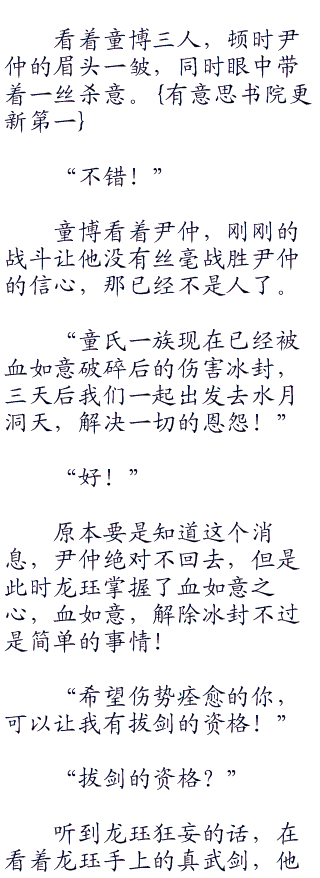 看着童博三人，顿时尹
仲的眉头一皱，同时眼中带
着一丝杀意。{有意思书院更
新第一}
“不错！”
童博看着尹仲，刚刚的
战斗让他没有丝毫战胜尹仲
的信心，那已经不是人了。
“童氏一族现在已经被
血如意破碎后的伤害冰封，
三天后我们一起出发去水月
洞天，解决一切的恩怨！”
“好！”
原本要是知道这个消
息，尹仲绝对不回去，但是
此时龙珏掌握了血如意之
心，血如意，解除冰封不过
是简单的事情！
“希望伤势痊愈的你，
可以让我有拔剑的资格！”
“拔剑的资格？”
听到龙珏狂妄的话，在
看着龙珏手上的真武剑，他